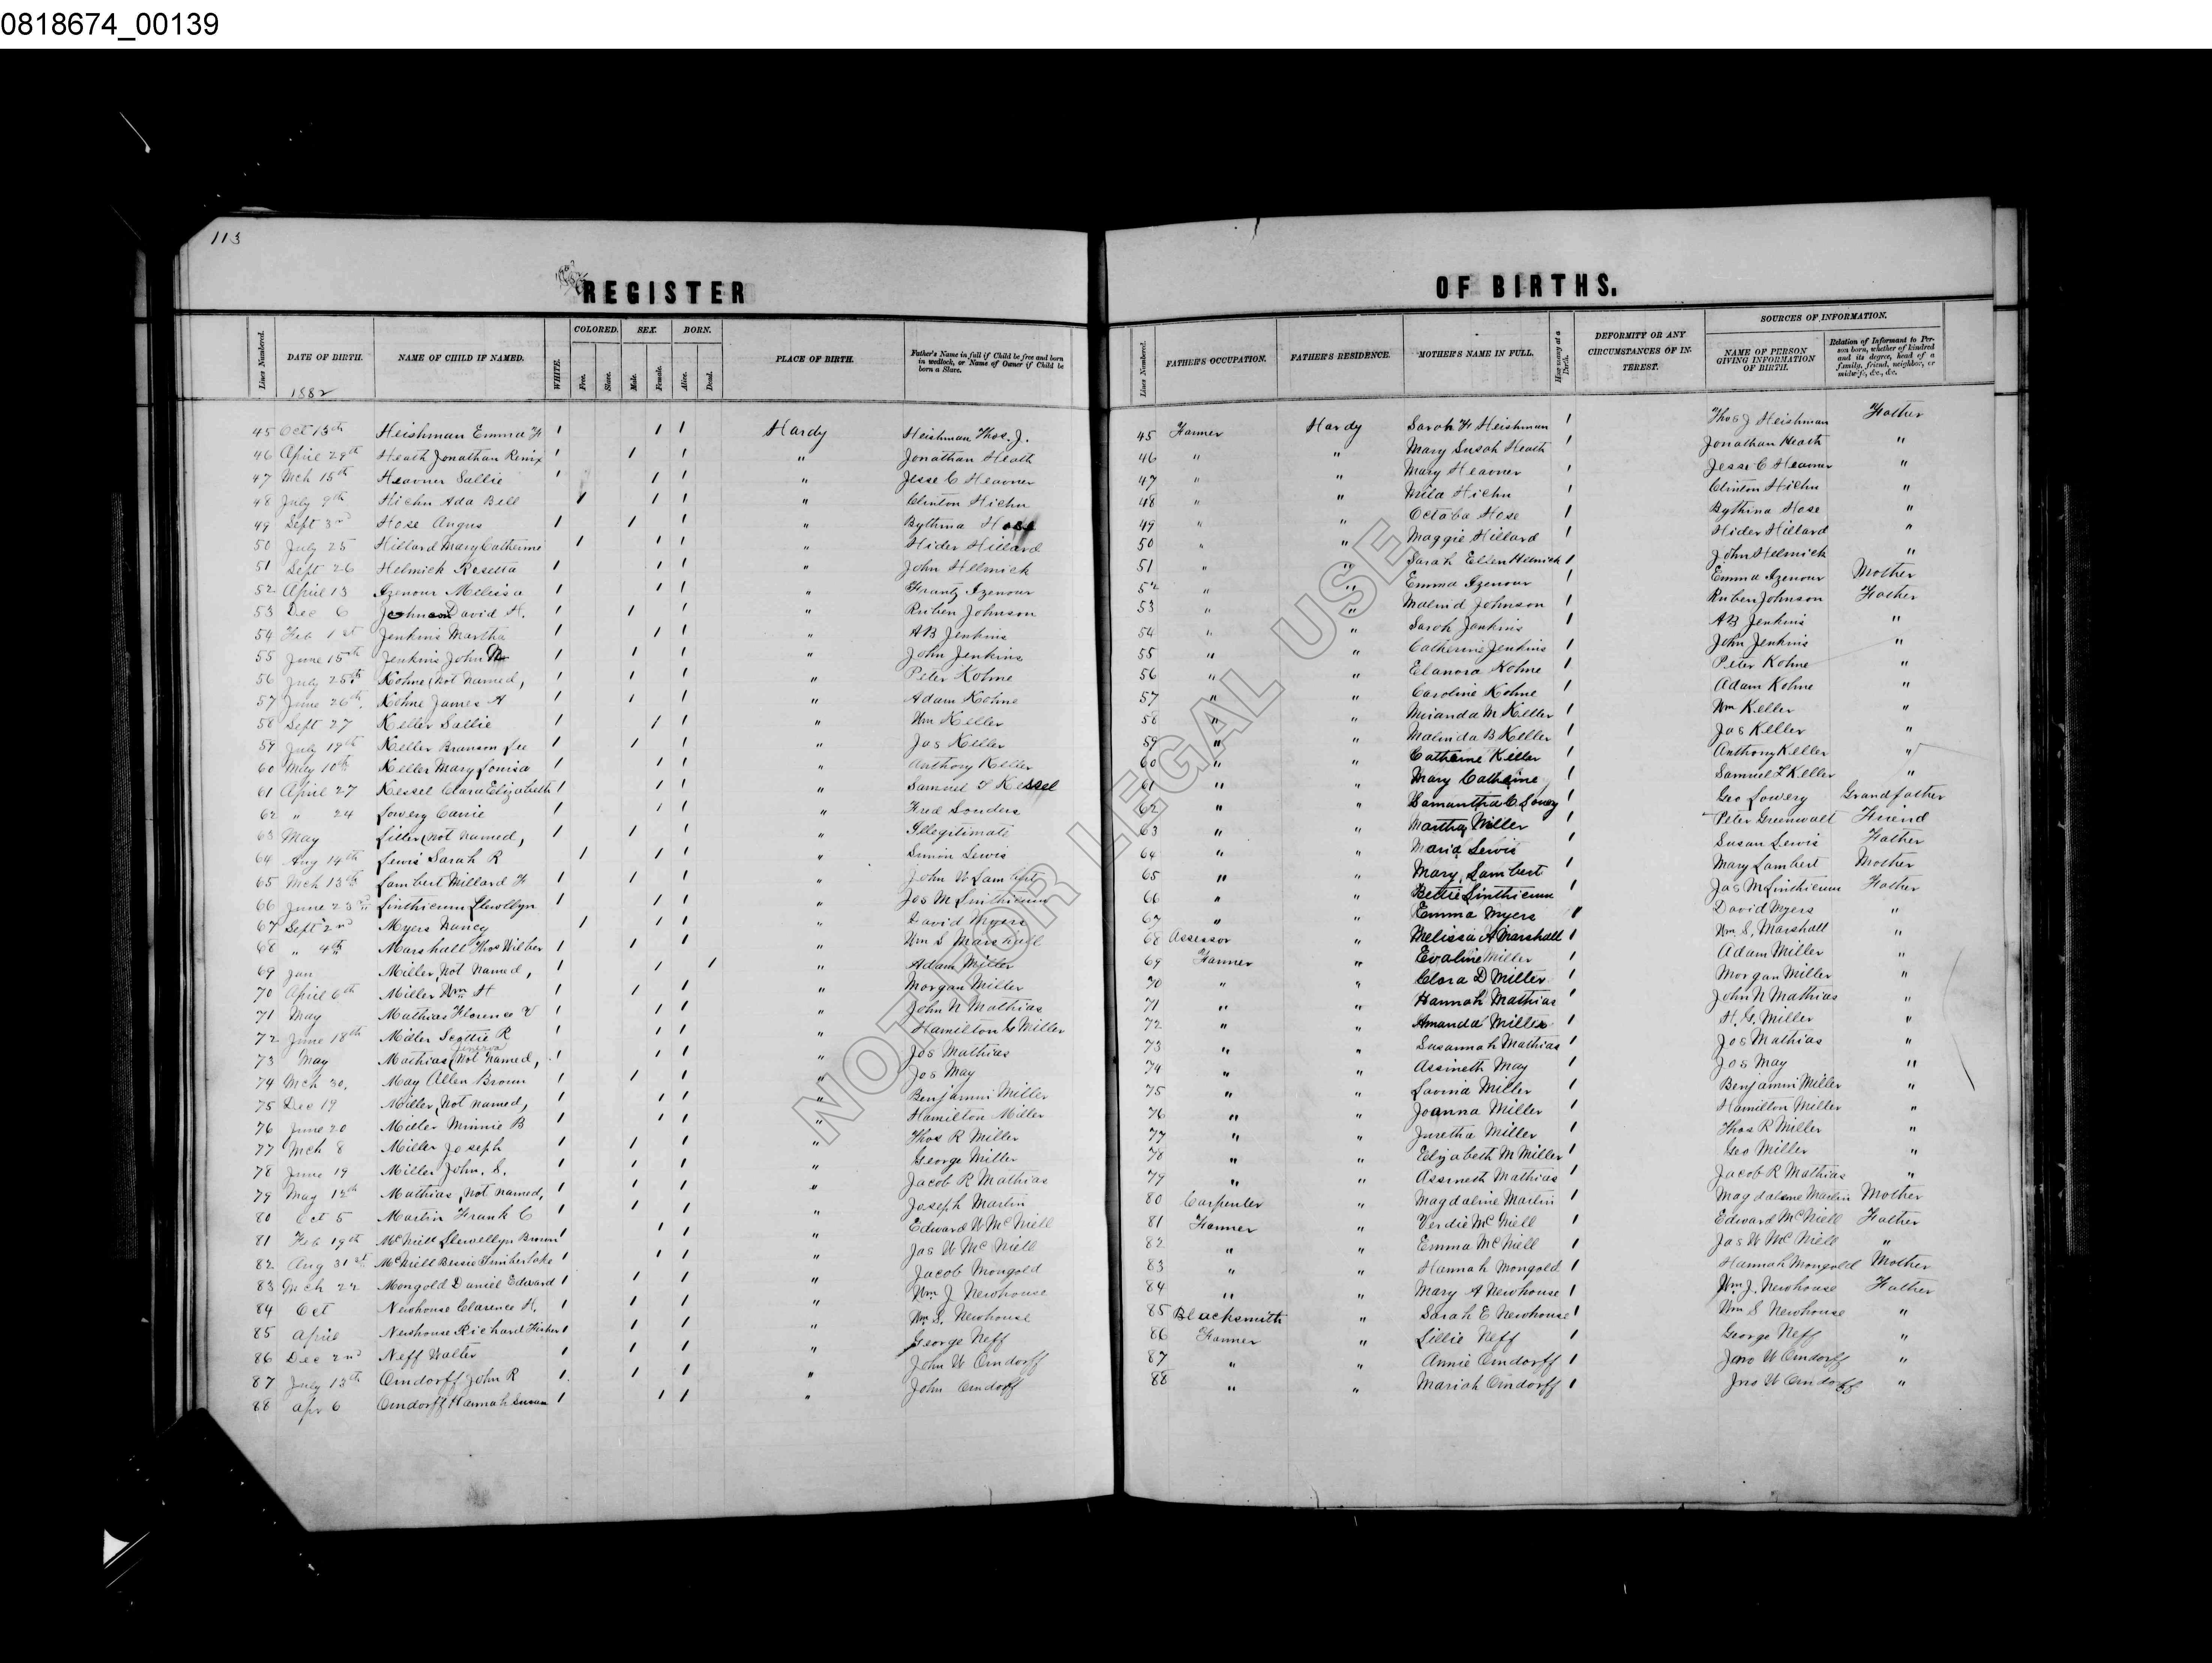 0818674_00139
113
REGISTER OF BIRTHS.
Lines Numbered. DATE OF BIRTH. NAME OF CHILD IF NAMED. WHITE. COLORED. Free. Slave. SEX. Male. Female. BORN. Alive. Dead. PLACE OF BIRTH. Father's Name in full if Child be free and born in wedlock, or Name of Owner if Child be born a Slave. Lines Numbered. FATHER'S OCCUPATION. FATHER'S RESIDENCE. MOTHER'S NAME IN FULL. How many at a Birth. DEFORMITY OR ANY CIRCUMSTANCES OF INTEREST. SOURCES OF INFORMATION. NAME OF PERSON GIVING INFORMATION OF BIRTH. Relation of Informant to Person born, whether of kindred and its degree, head of a family, friend, neighbor, or midwife, &c., &c.
1882
45 Oct 13th Heishman Emma F 1 1 1 Hardy Heishman Thos. J. 45 Farmer Hardy Sarah F Heishman 1 Thos J Heishman Father
46 April 29th Heath Jonathan Renix 1 1 1 " Jonathan Heath 46 " " Mary Susah Heath 1 Jonathan Heath "
47 Mch 15th Heavner Sallie 1 1 1 " Jesse C Heavner 47 " " Mary Heavner 1 Jesse C Heavner "
48 July 9th Hichn Ada Bell 1 1 1 " Clinton Hichn 48 " " Mila Hichn 1 Clinton Hichn "
49 Sept 3rd Hose Angus 1 1 1 " Bythina Hose 49 " " Octaba Hose 1 Bythina Hose "
50 July 25 Hillard Mary Catherine 1 1 1 " Hider Hillard 50 " " Maggie Hillard 1 Hider Hillard "
51 Sept 26 Helmick Rosetta 1 1 1 " John Helmick 51 " " Sarah Ellen Helmick 1 John Helmick "
52 April 13 Izenour Melissa 1 1 1 " Frantz Izenour 52 " " Emma Izenour 1 Emma Izenour Mother
53 Dec 6 Johnson David H. 1 1 1 " Ruben Johnson 53 " " Malind Johnson 1 Ruben Johnson Father
54 Feb 1st Jenkins Martha 1 1 1 " AB Jenkins 54 " " Sarah Jenkins 1 AB Jenkins "
55 June 15th Jenkins John 1 1 1 " John Jenkins 55 " " Catherine Jenkins 1 John Jenkins "
56 July 25th Kohne (not named, 1 1 1 " Peter Kohne 56 " " Elanora Kohne 1 Peter Kohne "
57 June 26th Kohne James A 1 1 1 " Adam Kohne 57 " " Caroline Kohne 1 Adam Kohne "
58 Sept 27 Keller Sallie 1 1 1 " Wm Keller 58 " " Miranda M Keller 1 Wm Keller "
59 July 19th Keller Branson Lee 1 1 1 " Jas Keller 59 " " Malinda B Keller 1 Jas Keller "
60 May 10th Keller Mary Louisa 1 1 1 " Anthony Keller 60 " " Catherine Keller 1 Anthony Keller "
61 April 27 Kessel Clara Elizabeth 1 1 1 " Samuel T Kessel 61 " " Mary Catherine 1 Samuel T Keller "
62 " 24 Lowery Carrie 1 1 1 " Fred Souders 62 " " Samantha C Lowry 1 Geo Lowery Grandfather
63 May Liller, not named, 1 1 1 " Illegitimate 63 " " Martha Miller 1 Peter Greenwalt Friend
64 Aug 14th Lewis Sarah R 1 1 1 " Simon Lewis 64 " " Maria Lewis 1 Susan Lewis Father
65 Mch 13th Lambert Millard F 1 1 1 " John W Lambert 65 " " Mary Lambert 1 Mary Lambert Mother
66 June 23rd Linthicum Llewellyn 1 1 1 " Jos M Linthicum 66 " " Bettie Linthicum 1 Jas M Linthicum Father
67 Sept 2nd Myers Nancy 1 1 1 " David Myers 67 " " Emma Myers 1 David Myers "
68 " 4th Marshall Thos Wilber 1 1 1 " Wm S Marshall 68 Assessor " Melissa A Marshall 1 Wm S. Marshall "
69 Jan Miller, Not Named, 1 1 1 " Adam Miller 69 Farmer " Evaline Miller 1 Adam Miller "
70 April 6th Miller Wm H 1 1 1 " Morgan Miller 70 " " Clara D Miller 1 Morgan Miller "
71 May Mathias Florence V 1 1 1 " John N Mathias 71 " " Hannah Mathias 1 John N Mathias "
72 June 18th Miller Scottie R 1 1 1 " Hamilton G Miller 72 " " Amanda Miller 1 H. G. Miller "
73 May Mathias (Not Named, 1 1 1 " Jos Mathias 73 " " Susannah Mathias 1 Jos Mathias "
74 Mch 30, May Allen Brown 1 1 1 " Jos May 74 " " Assineth May 1 Jos May "
75 Dec 19 Miller, Not named, 1 1 1 " Benjamin Miller 75 " " Lavina Miller 1 Benjamin Miller "
76 June 20 Miller Minnie B 1 1 1 " Hamilton Miller 76 " " Joanna Miller 1 Hamilton Miller "
77 Mch 8 Miller Joseph 1 1 1 " Thos R Miller 77 " " Juretha Miller 1 Thos R Miller "
78 June 19 Miller John. S. 1 1 1 " George Miller 78 " " Elizabeth M Miller 1 Geo Miller "
79 May 12th Mathias, Not named, 1 1 1 " Jacob R Mathias 79 " " Assineth Mathias 1 Jacob R Mathias "
80 Oct 5 Martin Frank C 1 1 1 " Joseph Martin 80 Carpenter " Magdaline Martin 1 Magdalene Martin Mother
81 Feb 19th McNeill Llewellyn Brown 1 1 1 " Edward W McNeill 81 Farmer " Verdie McNeill 1 Edward McNeill Father
82 Aug 31st McNeill Bessie Timberlake 1 1 1 " Jas W McNeill 82 " " Emma McNeill 1 Jas W McNeill "
83 Mch 22 Mongold Daniel Edward 1 1 1 " Jacob Mongold 83 " " Hannah Mongold 1 Hannah Mongold Mother
84 Oct Newhouse Clarence H. 1 1 1 " Wm J Newhouse 84 " " Mary A Newhouse 1 Wm. J. Newhouse Father
85 April Newhouse Richard Fisher 1 1 1 " Wm. S. Newhouse 85 Blacksmith " Sarah E Newhouse 1 Wm S Newhouse "
86 Dec 2nd Neff Walter 1 1 1 " George Neff 86 Farmer " Lillie Neff 1 George Neff "
87 July 13th Orndorff John R 1 1 1 " John W Orndorff 87 " " Annie Orndorff 1 Jno W Orndorff "
88 Apr 6 Orndorff Hannah Susan 1 1 1 " John Orndorff 88 " " Mariah Orndorff 1 Jno W Orndorff "
NOT FOR LEGAL USE